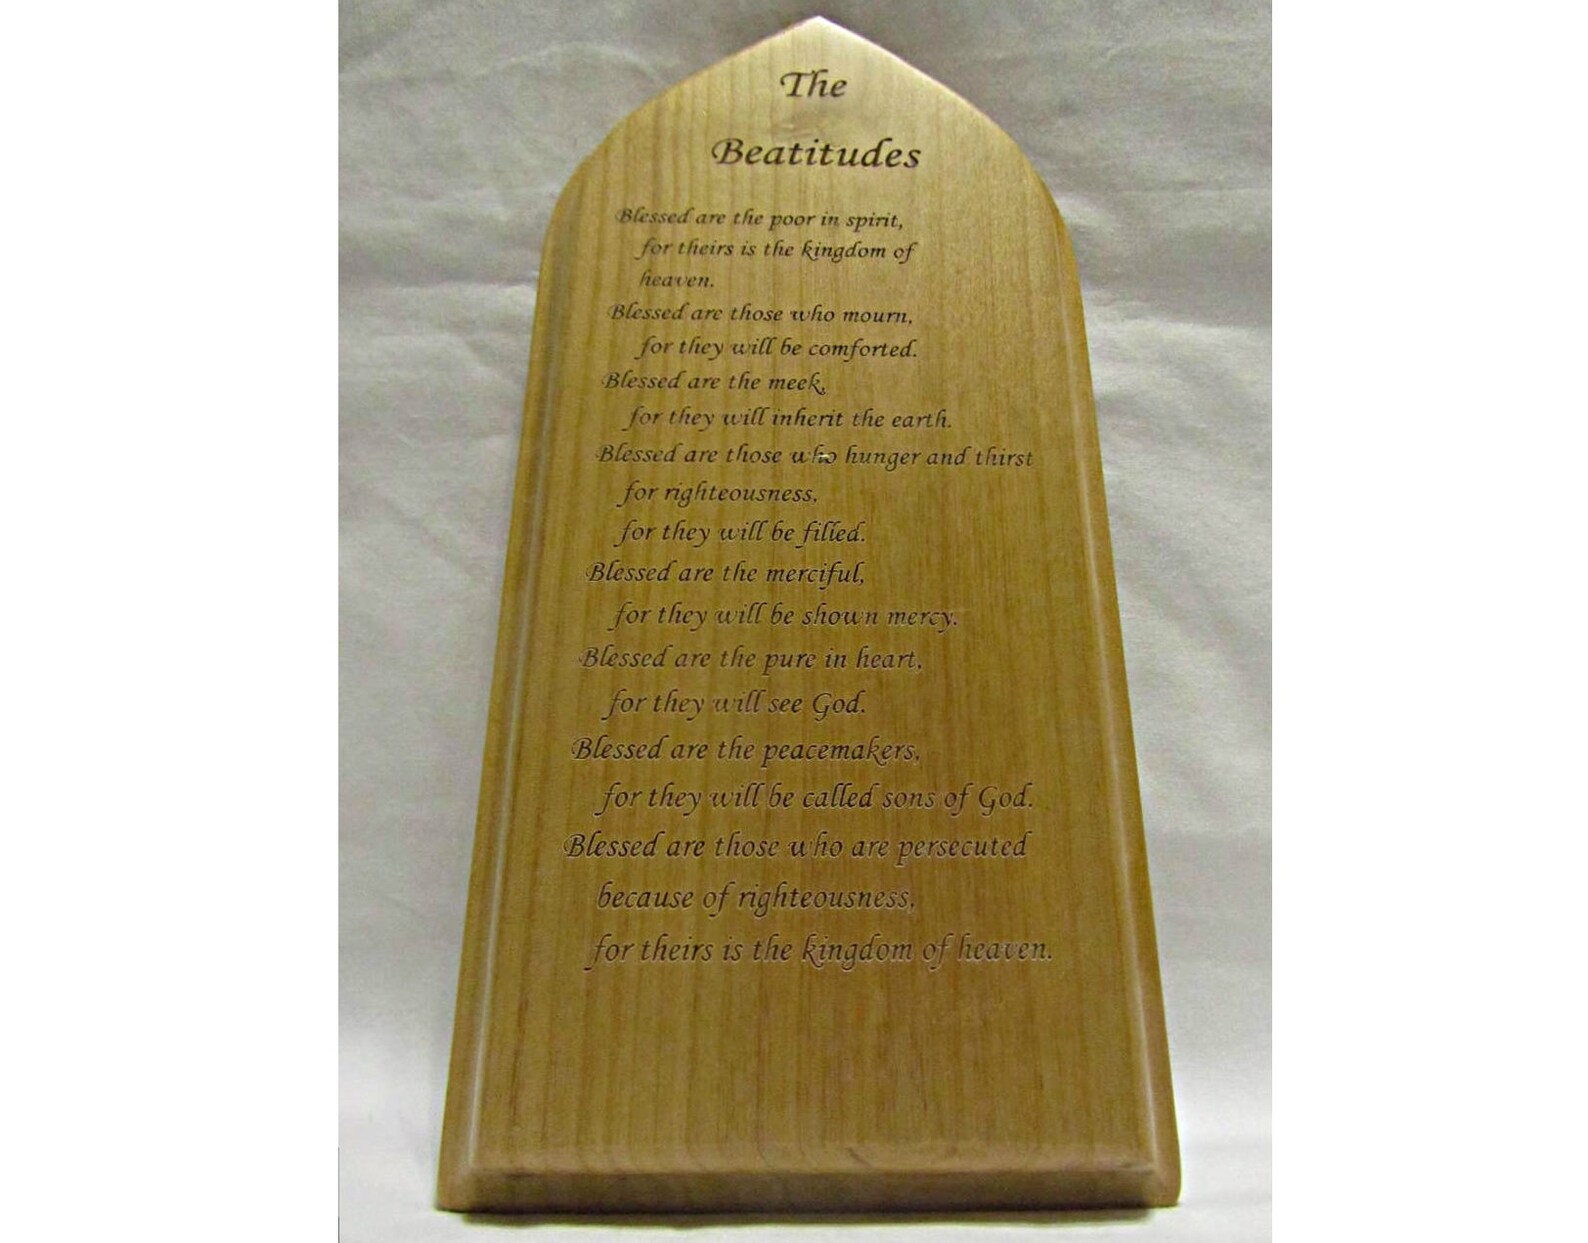 The
Beatitudes
Blessed are the poor in spirit,
for theirs is the kingdom of
heaven.
Blessed are those who mourn,
for they will be comforted.
Blessed are the meek,
for they will inherit the earth.
Blessed are those who hunger and thirst
for righteousness,
for they will be filled.
Blessed are the merciful,
for they will be shown mercy.
Blessed are the pure in heart,
for they will see God.
Blessed are the peacemakers,
for they will be called sons of God.
Blessed are those who are persecuted
because of righteousness,
for theirs is the kingdom of heaven.